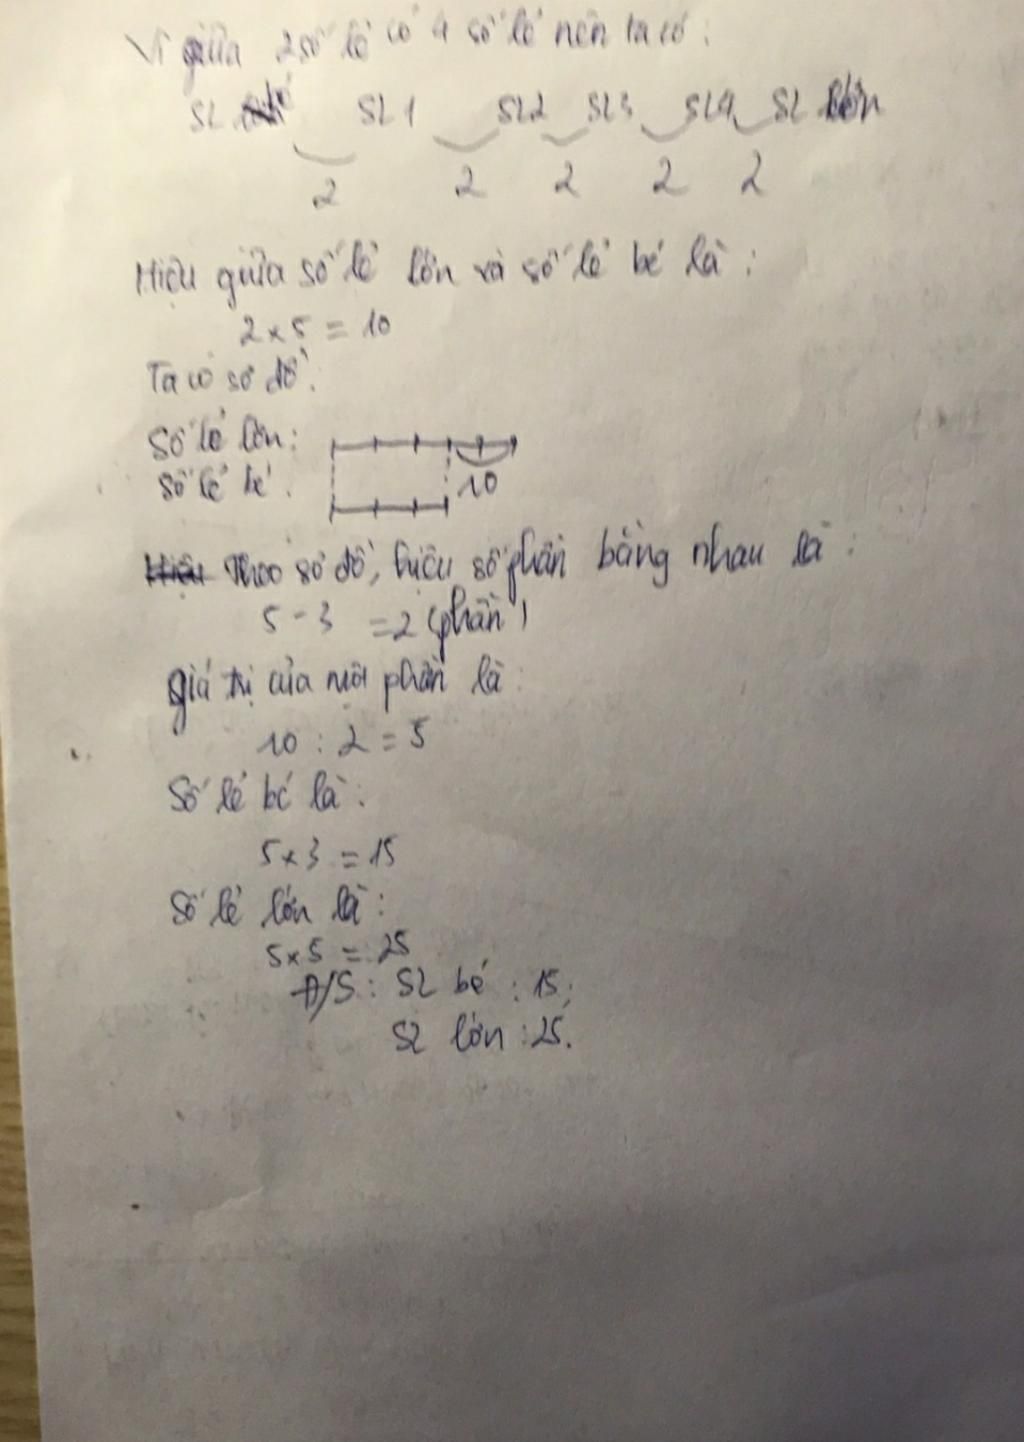 Vì giữa 2 số lẻ có 4 số lẻ nên ta có:
SL bé SL1 SL2 SL3 SL4 SL lớn
2 2 2 2 2
Hiệu giữa số lẻ lớn và số lẻ bé là:
2 x 5 = 10
Ta có sơ đồ:
Số lẻ lớn:
Số lẻ bé:
10
Theo sơ đồ, hiệu số phần bằng nhau là:
5 - 3 = 2 (phần)
Giá trị của một phần là:
10 : 2 = 5
Số lẻ bé là:
5 x 3 = 15
Số lẻ lớn là:
5 x 5 = 25
Đ/S: SL bé: 15;
SL lớn: 25.